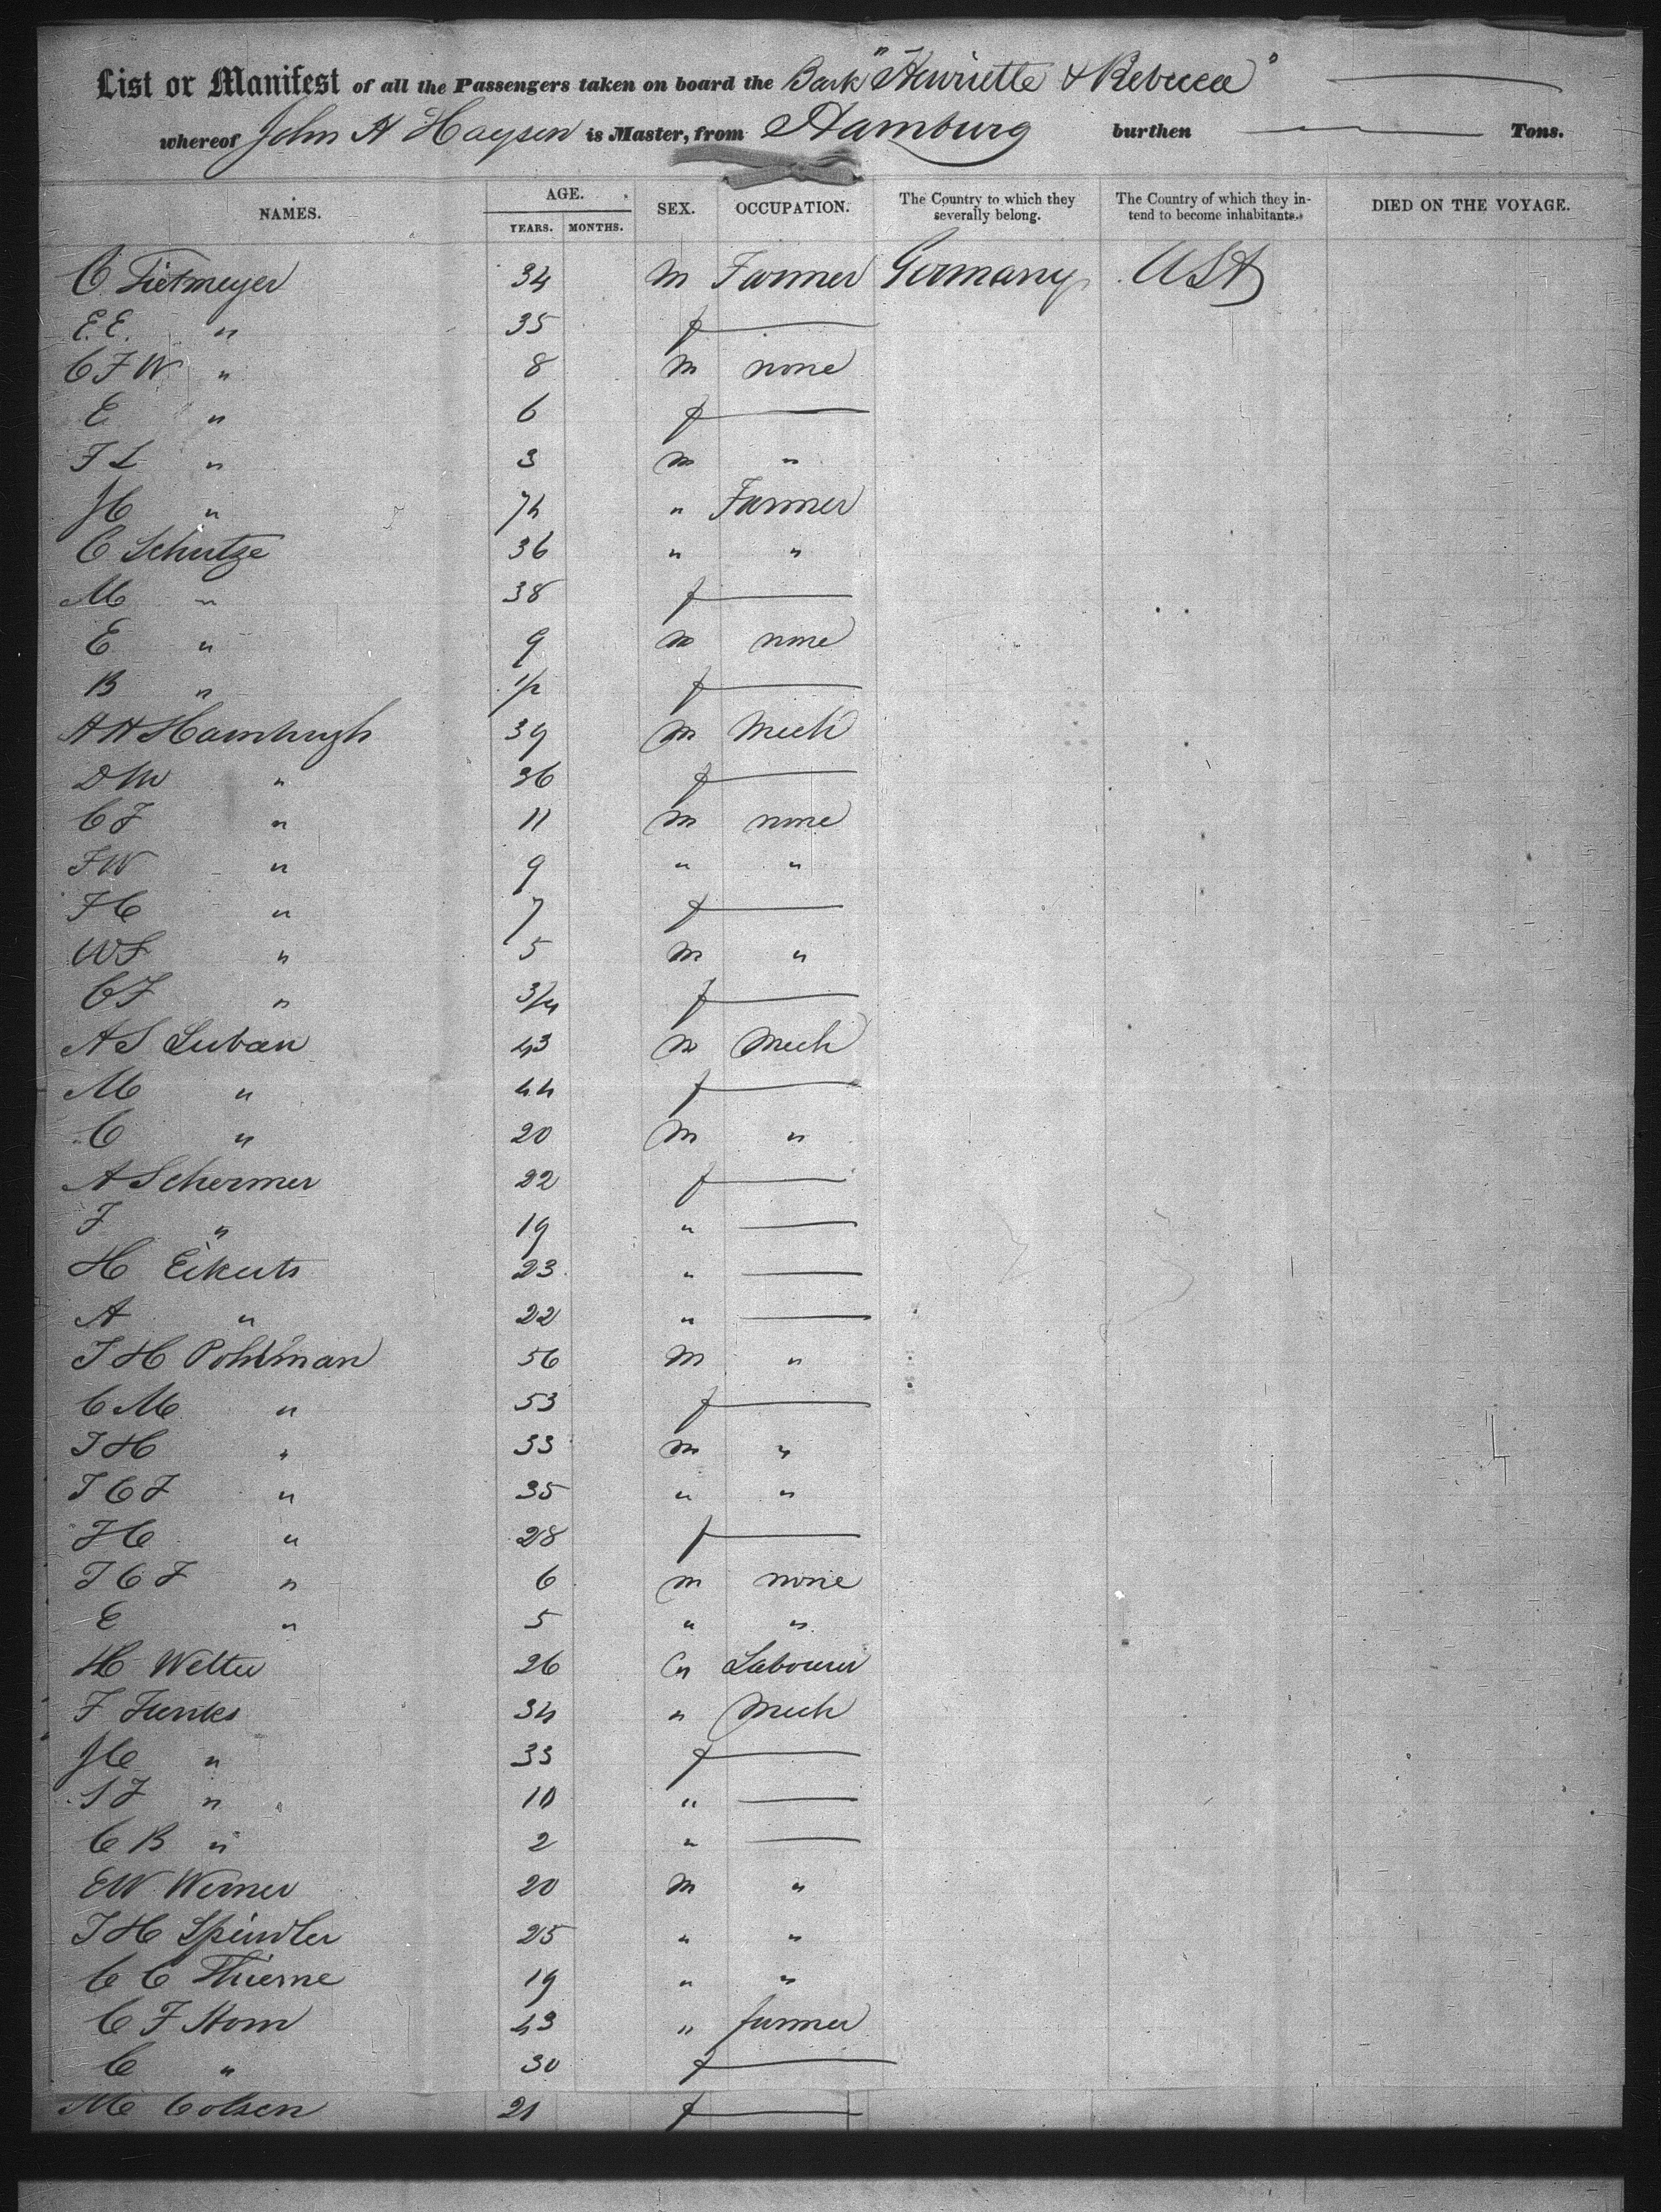 List or Manifest of all the Passengers taken on board the Bark "Henriette & Rebecca"
whereof John H Haysen is Master, from Hamburg burthen — Tons.
NAMES. AGE. SEX. OCCUPATION. The Country to which they severally belong. The Country of which they intend to become inhabitants. DIED ON THE VOYAGE.
YEARS. MONTHS.
C Tietmeyer 34 m Farmer Germany USA
E.E. " 35 f —
C F W " 8 m none
E " 6 f —
F L " 3 m "
H " 74 " Farmer
C Schutze 36 " "
M " 38 f —
E " 9 m none
B " 1/2 f —
39 m Mech
D M " 36 f —
C F " 11 m none
F W " 9 " "
F C " 7 f —
W F " 5 m "
C F " 3/4 f —
A S Luban 43 m Mech
M " 44 f —
C " 20 m "
A Schermer 22 f —
F " 19 " —
H Eikuts 23 " —
A " 22 " —
J H Pohlman 56 m "
C M " 53 f —
J H " 33 m "
J C F " 35 " "
H " 28 f —
J C F " 6 m none
E " 5 " "
H Welter 26 m Labourer
F Funks 34 " Mech
H " 33 f —
S F " 10 " —
C B " 2 " —
E W Werner 20 m "
J H Spindler 25 " "
C C Thieme 19 " "
C F Horn 43 " farmer
C " 30 f —
M Colsen 21 f —